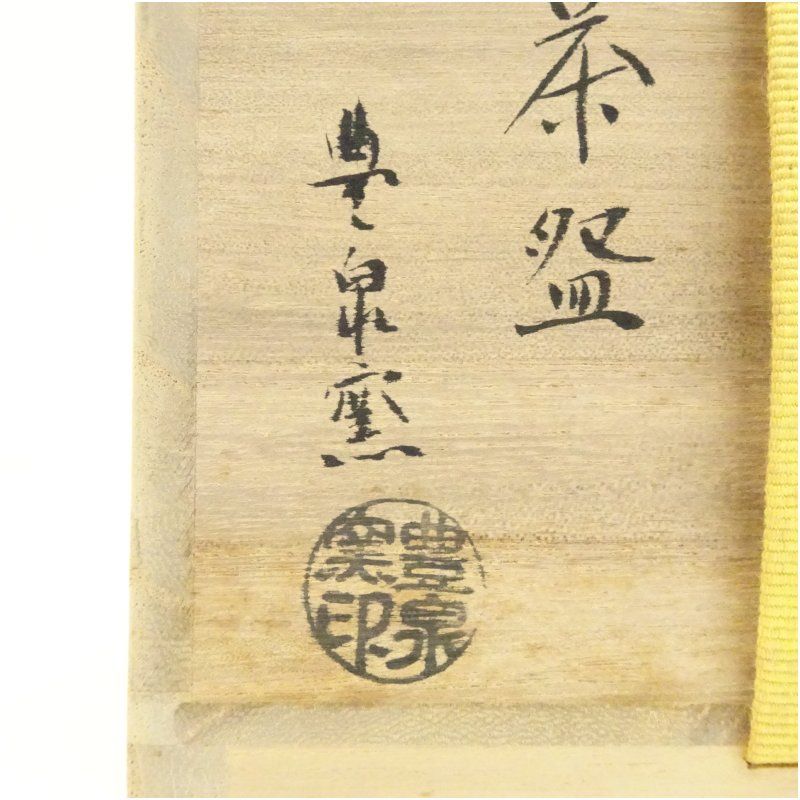 茶盌
豊泉窯
豊泉窯印